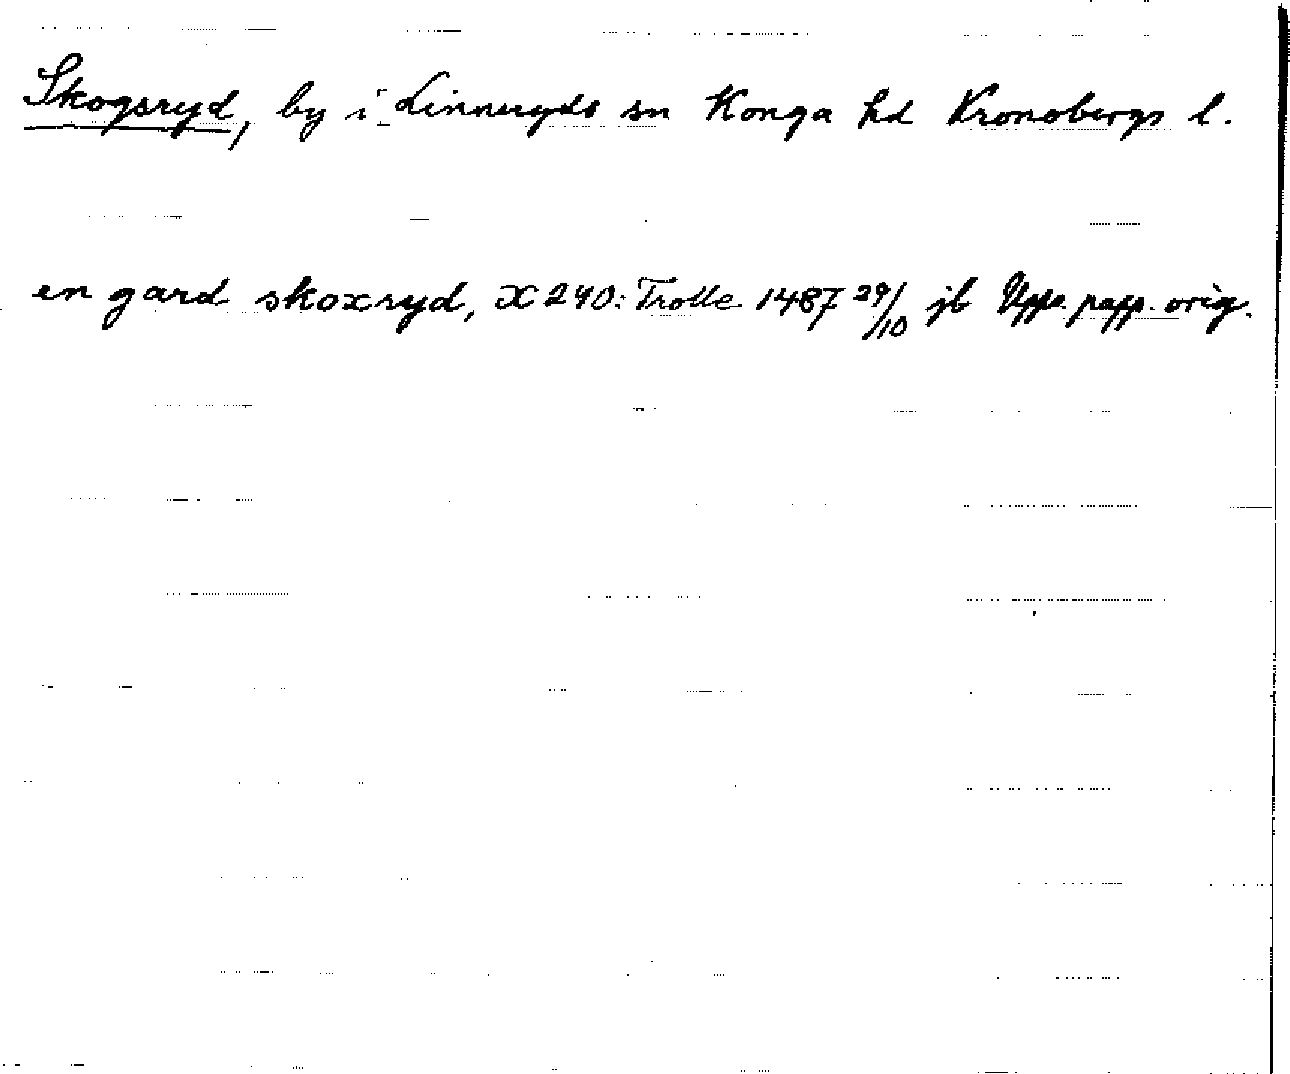 Skogsryd, by i Linneryds sn Konga hd Kronobergs l.
en gard skoxryd, X 240: Trolle 1487 29/10 jb Upps. papp. orig.